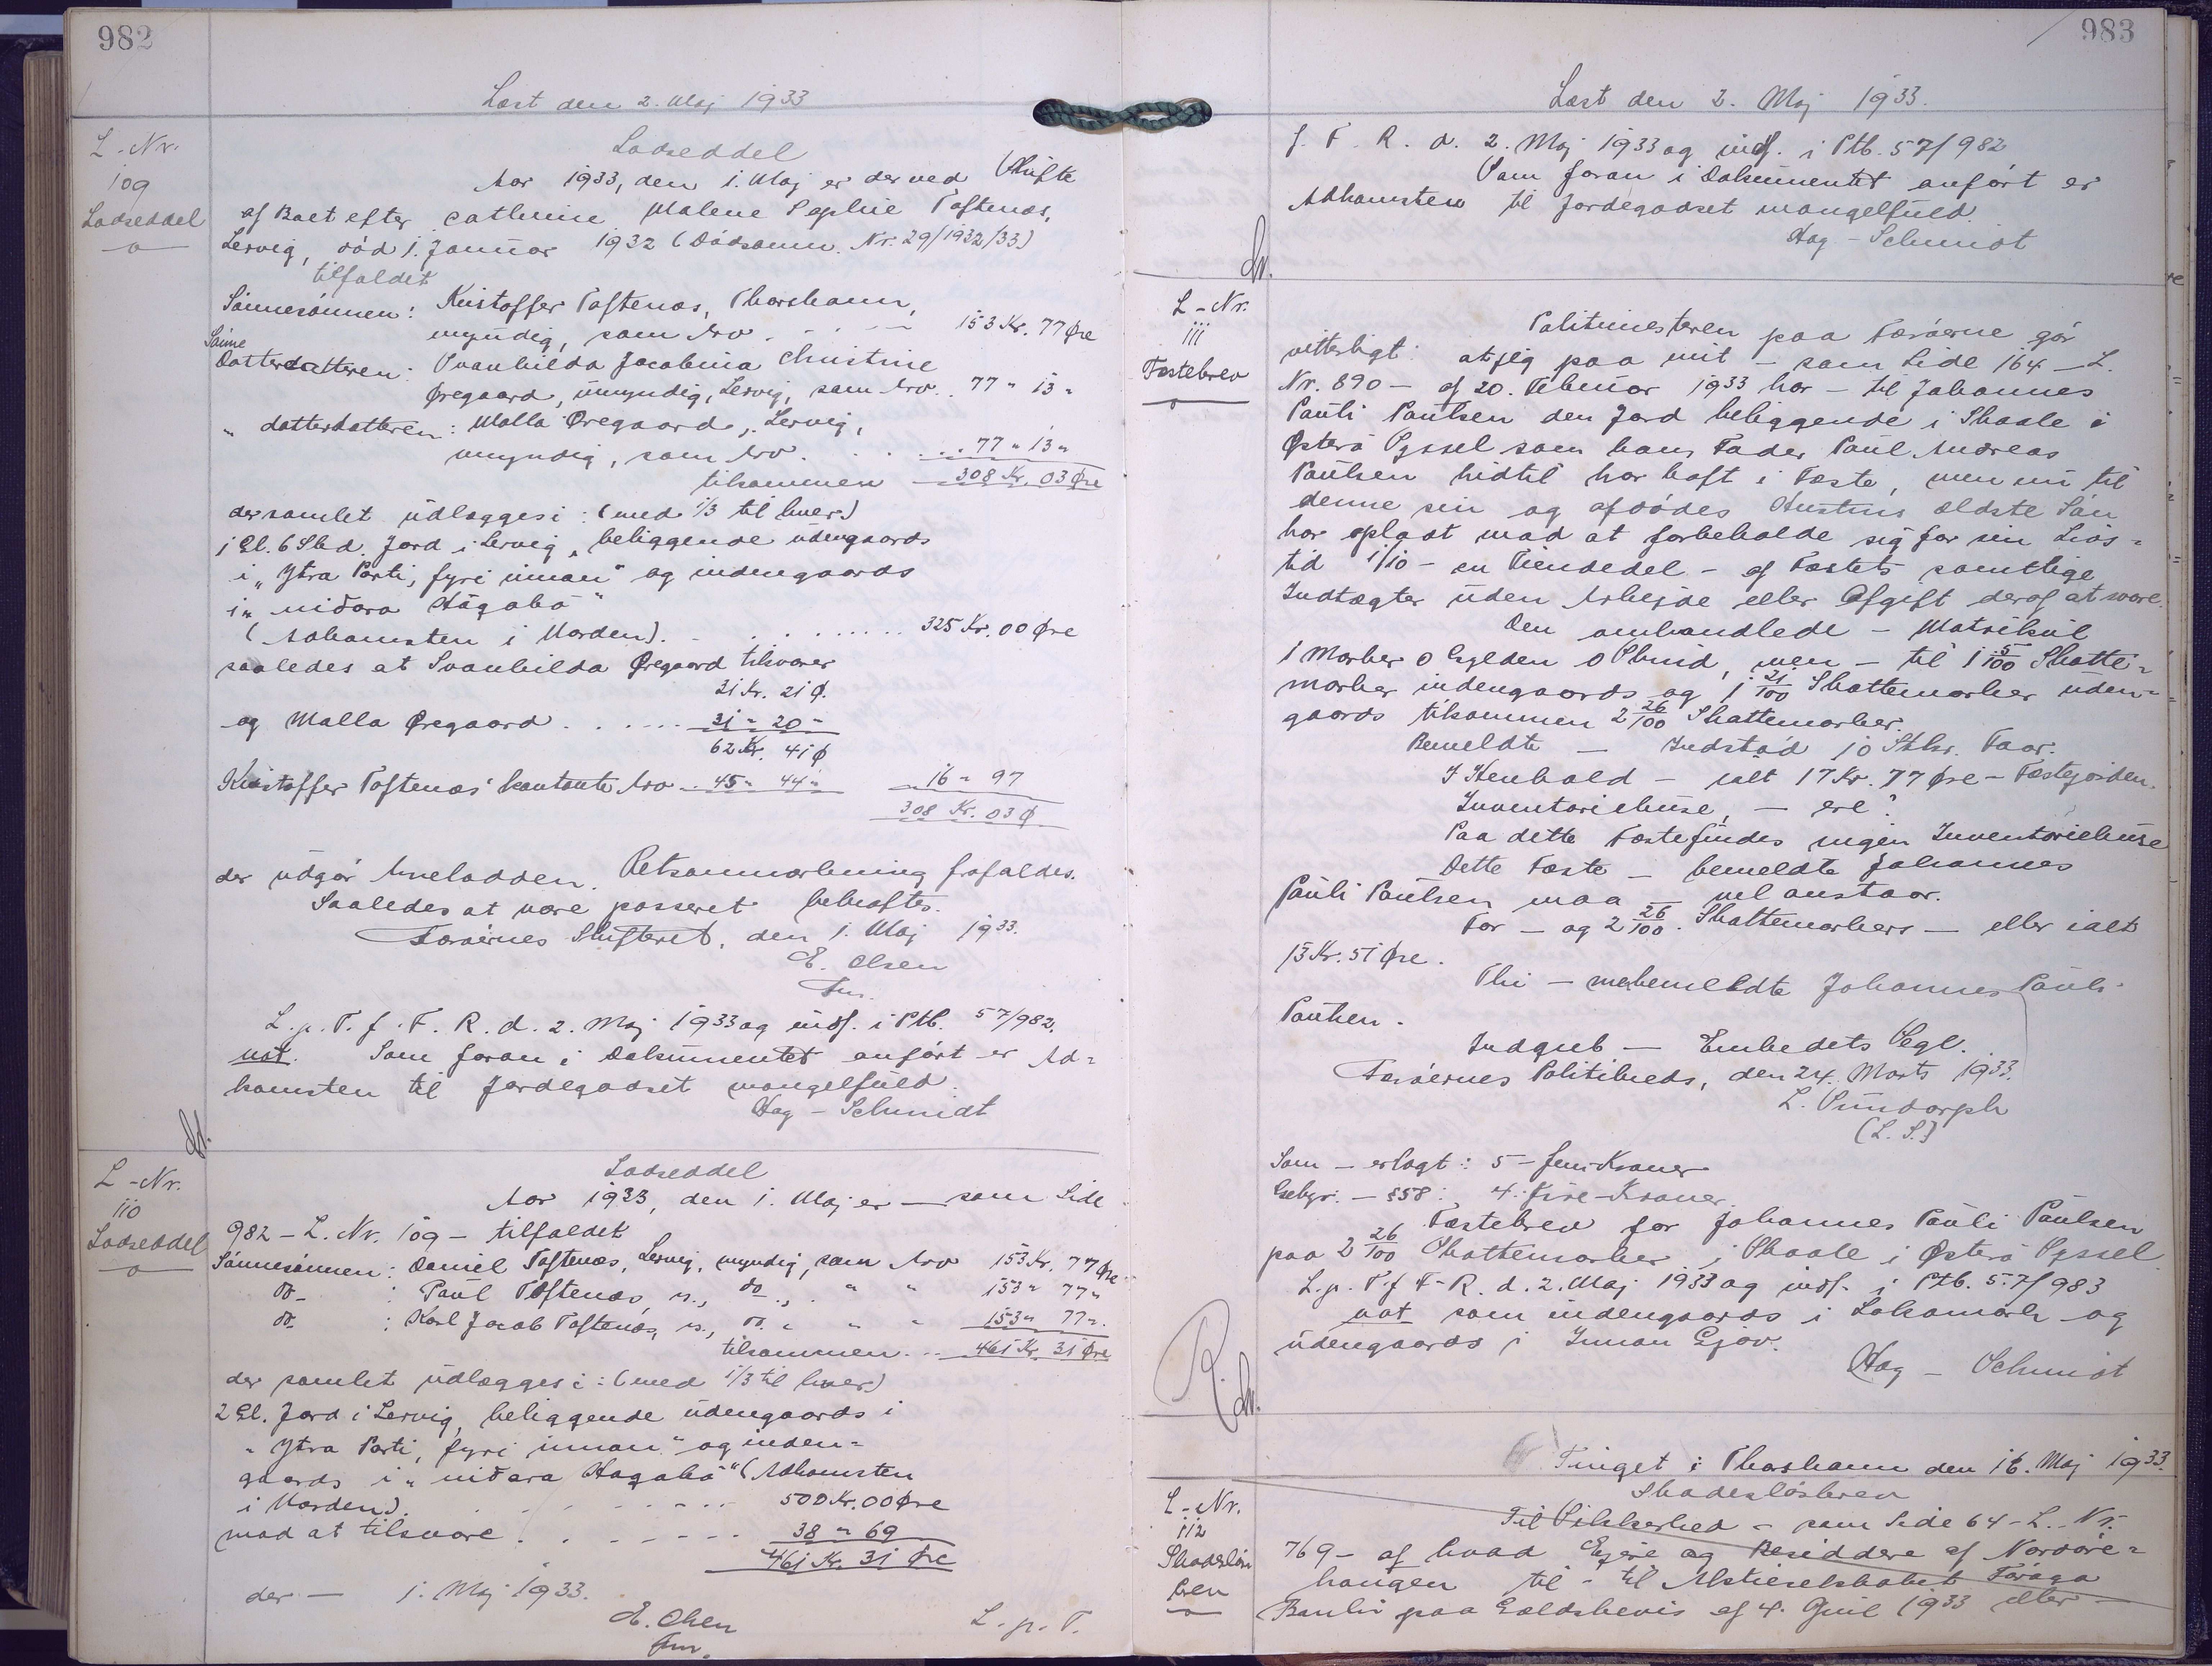 982
Læst den 2. Maj 1933
L.-Nr.
109
Lodseddel
Lodseddel
Aar 1933, den 1. Maj er der ved Skifte
af Boet efter Cathrine Malene Sophie Toftenæs,
Lervig, død 1. Januar 1932 (Dødsanm. Nr. 29/1932/33)
tilfaldet
Sønnesønnen: Kristoffer Toftenæs, Thorshavn,
myndig, som Arv . - - - 153 Kr. 77 Øre
Sønne
Datterdatteren: Svanhilda Jacobina Christine
Øregaard, umyndig, Lervig, som Arv . . 77 " 13 "
" datterdatteren: Malla Øregaard, Lervig,
umyndig, som Arv . . . . . . 77 " 13 "
tilsammen 308 Kr. 03 Øre
der samlet udlægges i: (med 1/3 til hver)
1 Gl. 6 Skd. Jord i Lervig, beliggende udengaards
i "Ytra Parti, fyri innan" og indengaards
i "niðara Høgabø"
(Adkomsten i Orden) . . . . . . . . 325 Kr. 00 Øre
saaledes at Svanhilda Øregaard tilsvarer
31 Kr. 21 Ø.
og Malla Øregaard . . . . . . 31 " 20 "
62 Kr. 41 Ø
Kristoffer Toftenæs' kontante Arv . . 45 " 44 " 16 " 97
308 Kr. 03 Ø
der udgør Arvelodden. Retsanmærkning frafaldes.
Saaledes at være passeret bekræftes.
Færøernes Skifteret, den 1. Maj 1933.
E. Olsen
Fm.
L. p. T. f. F. R. d. 2. Maj 1933 og indf. i Ptb. 57/982.
not. Som foran i Dokumentet anført er Ad=
komsten til Jordegodset mangelfuld.
Hag-Schmidt
L-Nr.
110
Lodseddel
Lodseddel
Aar 1933, den 1. Maj er — som Side
982 - L. Nr. 109 - tilfaldet
Sønnesønnen: Daniel Toftenæs, Lervig, myndig, som Arv 153 Kr. 77 Øre
do- : Paul Toftenæs, s., do., . " " 153 " 77 "
do- : Karl Jacob Toftenæs, s., do. " " " 153 " 77 ".
tilsammen . . . 461 Kr. 31 Øre
der samlet udlægges i: (med 1/3 til hver)
2 Gl. Jord i Lervig, beliggende udengaards i
"Ytra Parti, fyri innan" og inden=
gaards i "niðara Høgabø" (Adkomsten
i Orden). . . . . . . 500 Kr. 00 Øre
mod at tilsvare . . . . . . 38 " 69
461 Kr. 31 Øre
der — 1. Maj 1933.
E. Olsen
Fm.
L. p. T.
983
Læst den 2. Maj 1933.
f. F. R. d. 2. Maj 1933 og indf. i Ptb. 57/982
Som foran i Dokumentet anført er
Adkomsten til Jordegodset mangelfuld.
Hag-Schmidt
L-Nr.
111
Fæstebrev
Politimesteren paa Færøerne gør
vitterligt: at jeg paa mit — som Side 164 - L.
Nr. 890 - af 20. Februar 1933 har - til Johannes
Pauli Paulsen den Jord beliggende i Skaale i
Østerø Syssel som hans Fader Paul Andreas
Paulsen hidtil har haft i Fæste, men nu til
denne sin og afdødes Hustrus ældste Søn
har opladt mod at forbeholde sig for sin Livs=
tid 1/10 - en Tiendedel - af Fæstets samtlige
Indtægter uden Arbejde eller Afgift deraf at svare.
Den omhandlede - Matrikul
1 Marker 0 Gylden 0 Skind, men - til 1 5/100 Skatte=
marker indengaards og 1 21/100 Skattemarker uden=
gaards tilsammen 2 26/100 Skattemarker.
Bemeldte — Indstød 10 Stkr. Faar.
I Henhold - ialt 17 Kr. 77 Øre - Fæstejorden.
Inventariehuse, - ere:
Paa dette Fæste findes ingen Inventariehuse
Dette Fæste — bemeldte Johannes
Pauli Paulsen maa — vel anstaar.
For - og 2 26/100. Skattemarkers — eller ialt
13 Kr. 51 Øre.
Thi — merbemeldte Johannes Pauli
Paulsen.
Indgreb — Embedets Segl.
Færøernes Politikreds, den 24. Marts 1933.
L. Pundorph
(L. S.)
Som - erlagt: 5 - fem Kroner
Gebyr. - §58: 4. fire - Kroner.
Fæstebrev for Johannes Pauli Paulsen
paa 2 26/100 Skattemarker i Skaale i Østerø Syssel
L. p. T. f. F. R. d. 2. Maj 1933 og indf. i Ptb. 57/983
not som indengaards i Lokamørk og
udengaards i Innan Gjov.
Hag - Schmidt
R.
Tinget i Thorshavn den 16. Maj 1933.
L-Nr.
112
Skadesløs
brev
Skadesløsbrev
Til Sikkerhed - som Side 64 - L.-Nr.
769 - af hvad Ejere og Besiddere af Nordøre=
haugen til - til Aktieselskabet Føroya
Banki paa Gældsbevis af 4. April 1933 eller —